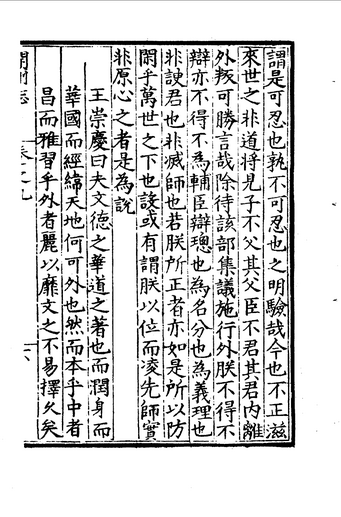 謂是可忍也孰不可忍也之明驗哉今也不正滋
來世之非道將見子不父其父臣不君其君內離
外叛可勝言哉除待該部集議施行外朕不得不
辯亦不得不為輔臣辯璁也為名分也為義理也
非諛君也非滅師也若朕所正者亦如是所以防
閑乎萬世之下也設或有謂朕以位而凌先師實
非原心之者是為說
王崇慶曰夫文德之華道之著也而潤身而
華國而經緯天地何可外也然而本乎中者
昌而雅習乎外者麗以靡文之不易擇久矣
開州志
卷之九